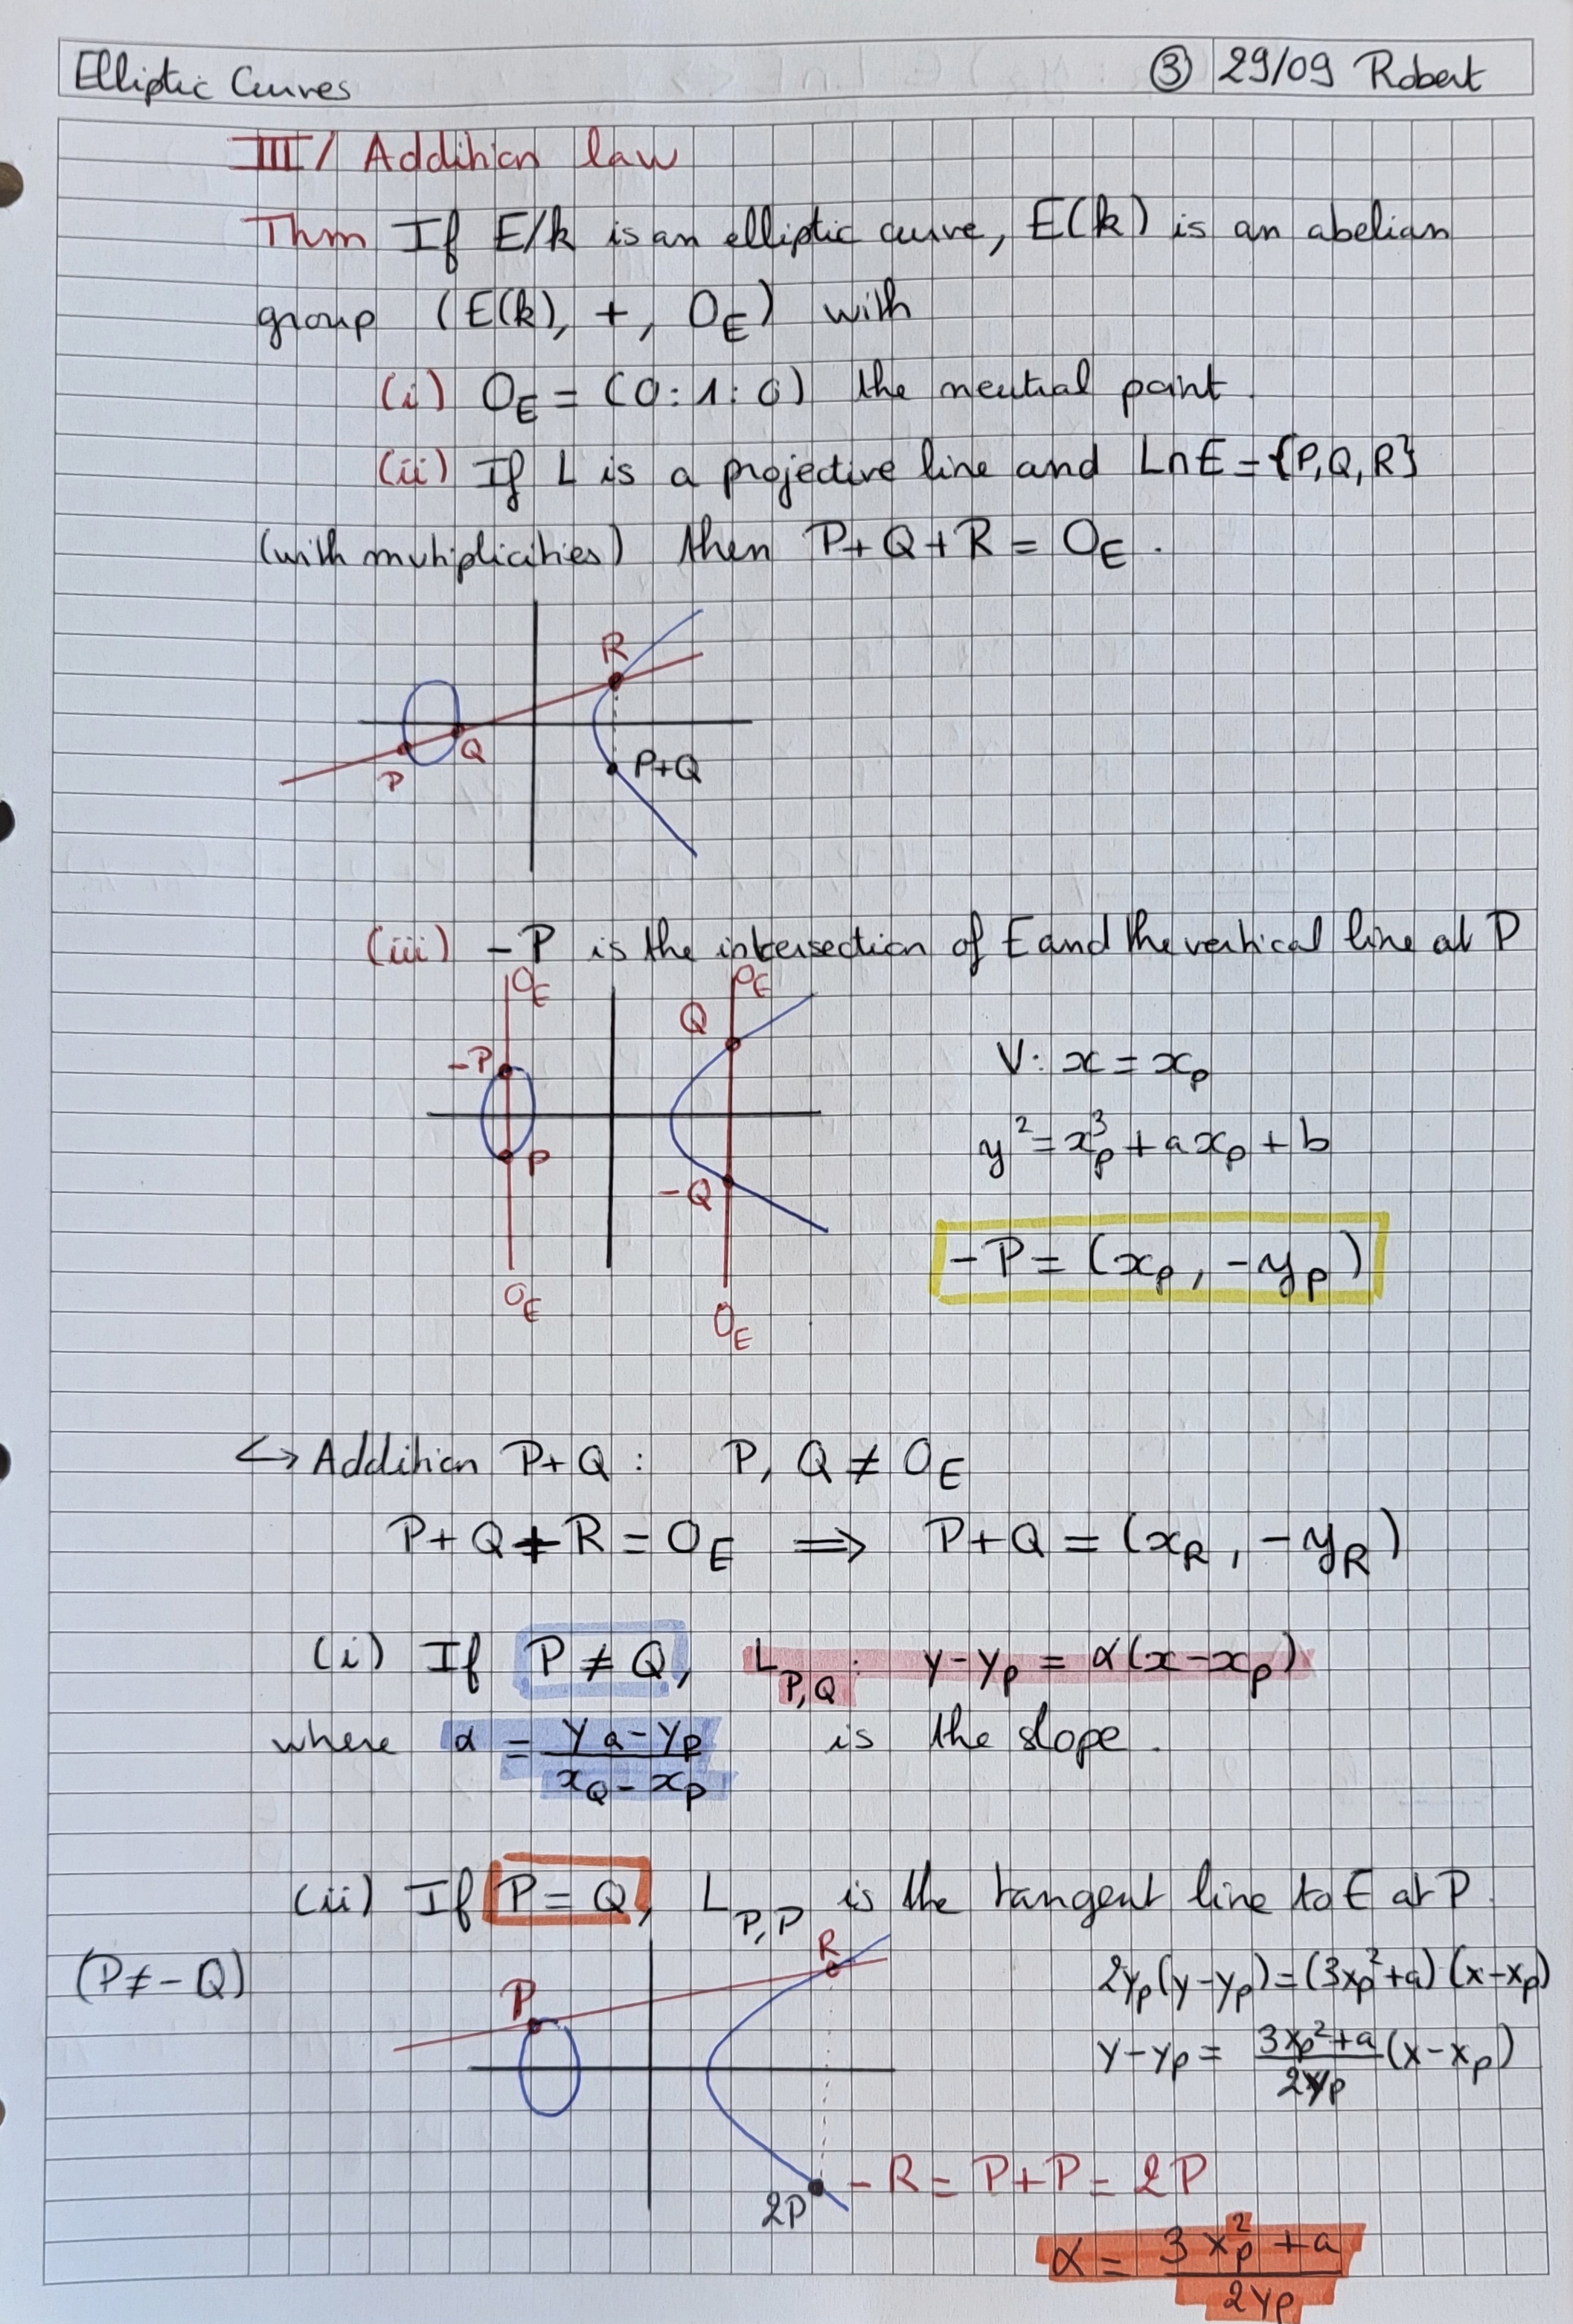 Elliptic Curves ③ 29/09 Robert
III/ Addition law
Thm If E/k is an elliptic curve, E(k) is an abelian
group (E(k), +, O_E) with
(i) O_E = (0:1:0) the neutral point.
(ii) If L is a projective line and L∩E = {P,Q,R}
(with multiplicities) then P+Q+R = O_E.
R
Q
P
P+Q
(iii) -P is the intersection of E and the vertical line at P
O_E O_E
Q
-P
P
-Q
O_E
O_E
V: x = x_P
y² = x_P³ + a x_P + b
-P = (x_P, -y_P)
↪ Addition P+Q: P, Q ≠ O_E
P+Q+R = O_E ⟹ P+Q = (x_R, -y_R)
(i) If P ≠ Q, L_{P,Q}: y-y_P = α(x-x_P)
where α = (y_Q - y_P)/(x_Q - x_P) is the slope.
(ii) If P = Q, L_{P,P} is the tangent line to E at P.
(P≠-Q)
R
P
2y_P(y-y_P) = (3x_P²+a)·(x-x_P)
y-y_P = (3x_P²+a)/(2y_P) (x-x_P)
2P -R = P+P = 2P
α = (3x_P²+a)/(2y_P)